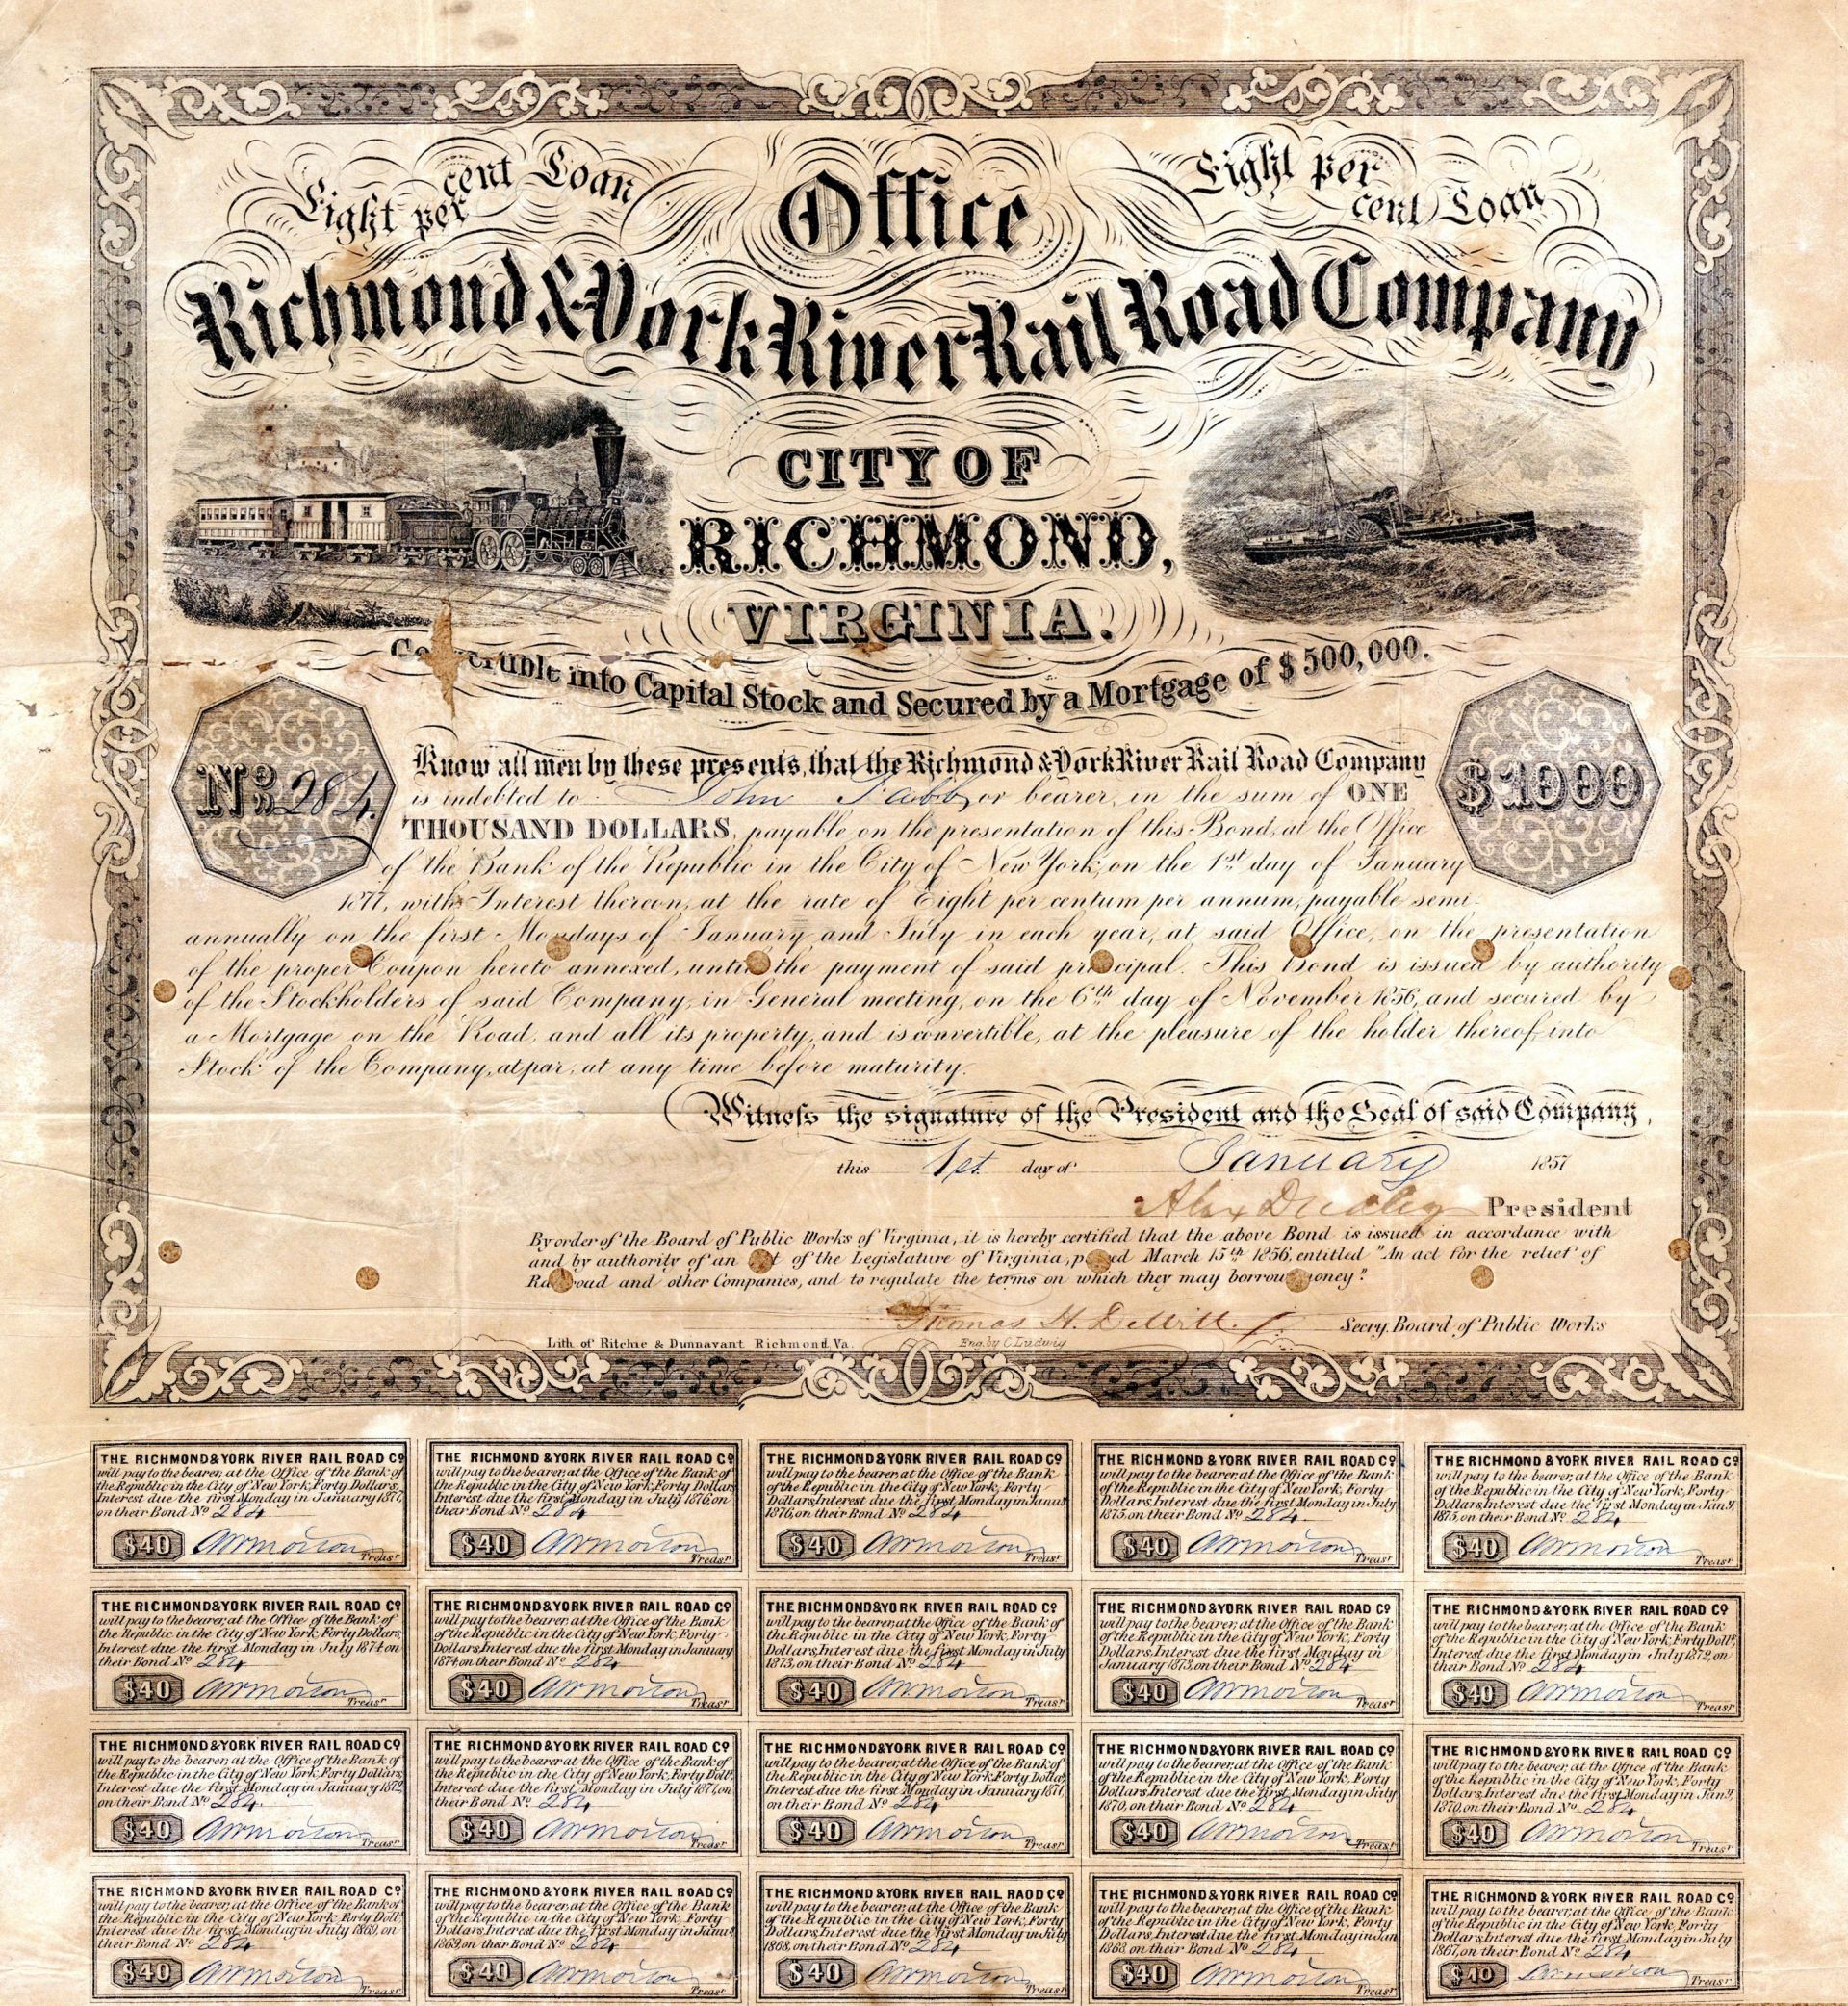 Eight per cent Loan
Office
Eight per cent Loan
Richmond & York River Rail Road Company
CITY OF
RICHMOND,
VIRGINIA.
into Capital Stock and Secured by a Mortgage of $500,000.
No. 284.
$1000
Know all men by these presents, that the Richmond & York River Rail Road Company
is indebted to John or bearer, in the sum of ONE
THOUSAND DOLLARS, payable on the presentation of this Bond, at the Office
of the Bank of the Republic in the City of New York, on the 1st day of January
1877, with Interest thereon, at the rate of Eight per centum per annum, payable semi-
annually on the first Mondays of January and July in each year, at said Office, on the presentation
of the proper Coupon hereto annexed, until the payment of said principal. This Bond is issued by authority
of the Stockholders of said Company, in General meeting, on the 6th day of November 1856, and secured by
a Mortgage on the Road, and all its property, and is convertible, at the pleasure of the holder thereof, into
Stock of the Company, at par, at any time before maturity.
Witness the signature of the President and the Seal of said Company,
this 1st. day of January 1857
Alex Dudley President
By order of the Board of Public Works of Virginia, it is hereby certified that the above Bond is issued in accordance with
and by authority of an Act of the Legislature of Virginia, passed March 15th 1856, entitled "An act for the relief of
Railroad and other Companies, and to regulate the terms on which they may borrow money".
Thomas H. DeWitt Secry. Board of Public Works
Lith. of Ritchie & Dunnavant Richmond, Va.
Eng. by C. Ludwig
THE RICHMOND & YORK RIVER RAIL ROAD Co.
will pay to the bearer, at the Office of the Bank of
the Republic in the City of New York, Forty Dollars,
Interest due the first Monday in January 1877,
on their Bond No. 284
$40 Treasr.
THE RICHMOND & YORK RIVER RAIL ROAD Co.
will pay to the bearer, at the Office of the Bank of
the Republic in the City of New York, Forty Dollars
Interest due the first Monday in July 1876, on
their Bond No. 284
$40 Treasr.
THE RICHMOND & YORK RIVER RAIL ROAD Co.
will pay to the bearer, at the Office of the Bank
of the Republic in the City of New York, Forty
Dollars, Interest due the first Monday in Janua
1876, on their Bond No. 284
$40 Treasr.
THE RICHMOND & YORK RIVER RAIL ROAD Co.
will pay to the bearer, at the Office of the Bank
of the Republic in the City of New York, Forty
Dollars, Interest due the first Monday in July
1875, on their Bond No. 284
$40 Treasr.
THE RICHMOND & YORK RIVER RAIL ROAD Co.
will pay to the bearer, at the Office of the Bank
of the Republic in the City of New York, Forty
Dollars, Interest due the first Monday in Jany.
1875, on their Bond No. 284
$40 Treasr.
THE RICHMOND & YORK RIVER RAIL ROAD Co.
will pay to the bearer, at the Office of the Bank of
the Republic in the City of New York, Forty Dollars,
Interest due the first Monday in July 1874 on
their Bond No. 284
$40 Treasr.
THE RICHMOND & YORK RIVER RAIL ROAD Co.
will pay to the bearer, at the Office of the Bank
of the Republic in the City of New York, Forty
Dollars, Interest due the first Monday in January
1874 on their Bond No. 284
$40 Treasr.
THE RICHMOND & YORK RIVER RAIL ROAD Co.
will pay to the bearer, at the Office of the Bank of
the Republic in the City of New York, Forty
Dollars, Interest due the first Monday in July
1873, on their Bond No. 284
$40 Treasr.
THE RICHMOND & YORK RIVER RAIL ROAD Co.
will pay to the bearer, at the Office of the Bank
of the Republic in the City of New York, Forty
Dollars, Interest due the first Monday in
January 1873, on their Bond No. 284
$40 Treasr.
THE RICHMOND & YORK RIVER RAIL ROAD Co.
will pay to the bearer, at the Office of the Bank
of the Republic in the City of New York, Forty Dolls.
Interest due the first Monday in July 1872, on
their Bond No. 284
$40 Treasr.
THE RICHMOND & YORK RIVER RAIL ROAD Co.
will pay to the bearer, at the Office of the Bank of
the Republic in the City of New York, Forty Dollars,
Interest due the first Monday in January 1872,
on their Bond No. 284.
$40 Treasr.
THE RICHMOND & YORK RIVER RAIL ROAD Co.
will pay to the bearer at the Office of the Bank of
the Republic in the City of New York, Forty Dolls.
Interest due the first Monday in July 1871, on
their Bond No. 284
$40 Treasr.
THE RICHMOND & YORK RIVER RAIL ROAD Co.
will pay to the bearer, at the Office of the Bank of
the Republic in the City of New York Forty Dollas
Interest due the first Monday in January 1871,
on their Bond No. 284
$40 Treasr.
THE RICHMOND & YORK RIVER RAIL ROAD Co.
will pay to the bearer, at the Office of the Bank
of the Republic in the City of New York, Forty
Dollars, Interest due the first Monday in July
1870, on their Bond No. 284
$40 Treasr.
THE RICHMOND & YORK RIVER RAIL ROAD Co.
will pay to the bearer, at the Office of the Bank
of the Republic in the City of New York, Forty
Dollars, Interest due the first Monday in Jany.
1870, on their Bond No. 284
$40 Treasr.
THE RICHMOND & YORK RIVER RAIL ROAD Co.
will pay to the bearer, at the Office of the Bank of
the Republic in the City of New York, Forty Dolls.
Interest due the first Monday in July 1869, on
their Bond No. 284
$40 Treasr.
THE RICHMOND & YORK RIVER RAIL ROAD Co.
will pay to the bearer, at the Office of the Bank
of the Republic in the City of New York, Forty
Dollars, Interest due the first Monday in Janua
1869, on their Bond No. 284
$40 Treasr.
THE RICHMOND & YORK RIVER RAIL RAOD Co.
will pay to the bearer, at the Office of the Bank
of the Republic in the City of New York, Forty
Dollars, Interest due the first Monday in July
1868, on their Bond No. 284
$40 Treasr.
THE RICHMOND & YORK RIVER RAIL ROAD Co.
will pay to the bearer, at the Office of the Bank
of the Republic in the City of New York, Forty
Dollars, Interest due the first Monday in Jan
1868, on their Bond No. 284
$40 Treasr.
THE RICHMOND & YORK RIVER RAIL ROAD Co.
will pay to the bearer, at the Office of the Bank
of the Republic in the City of New York, Forty
Dollars, Interest due the first Monday in July
1867, on their Bond No. 284
$40 Treasr.